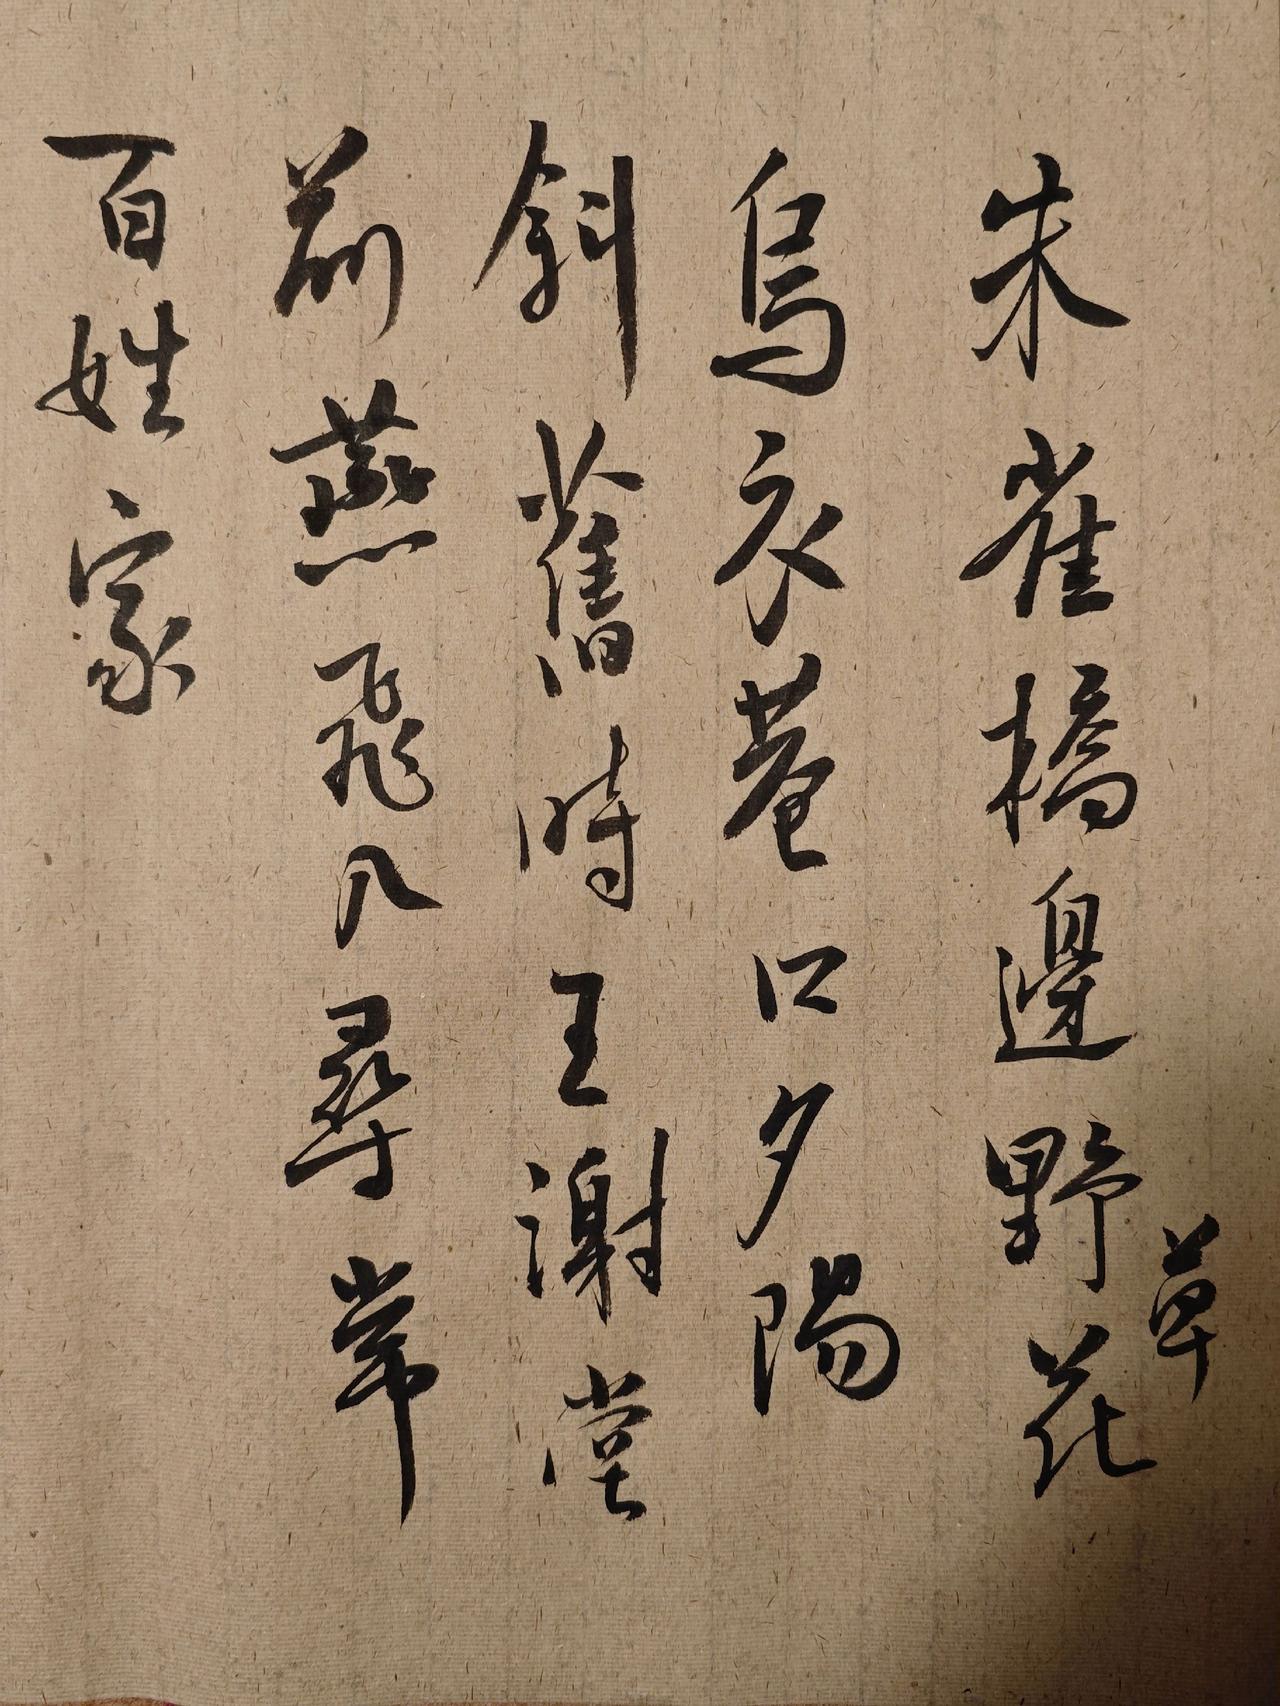 朱雀橋邊野草花
烏衣巷口夕陽
斜舊時王謝堂
前燕飛入尋常
百姓家